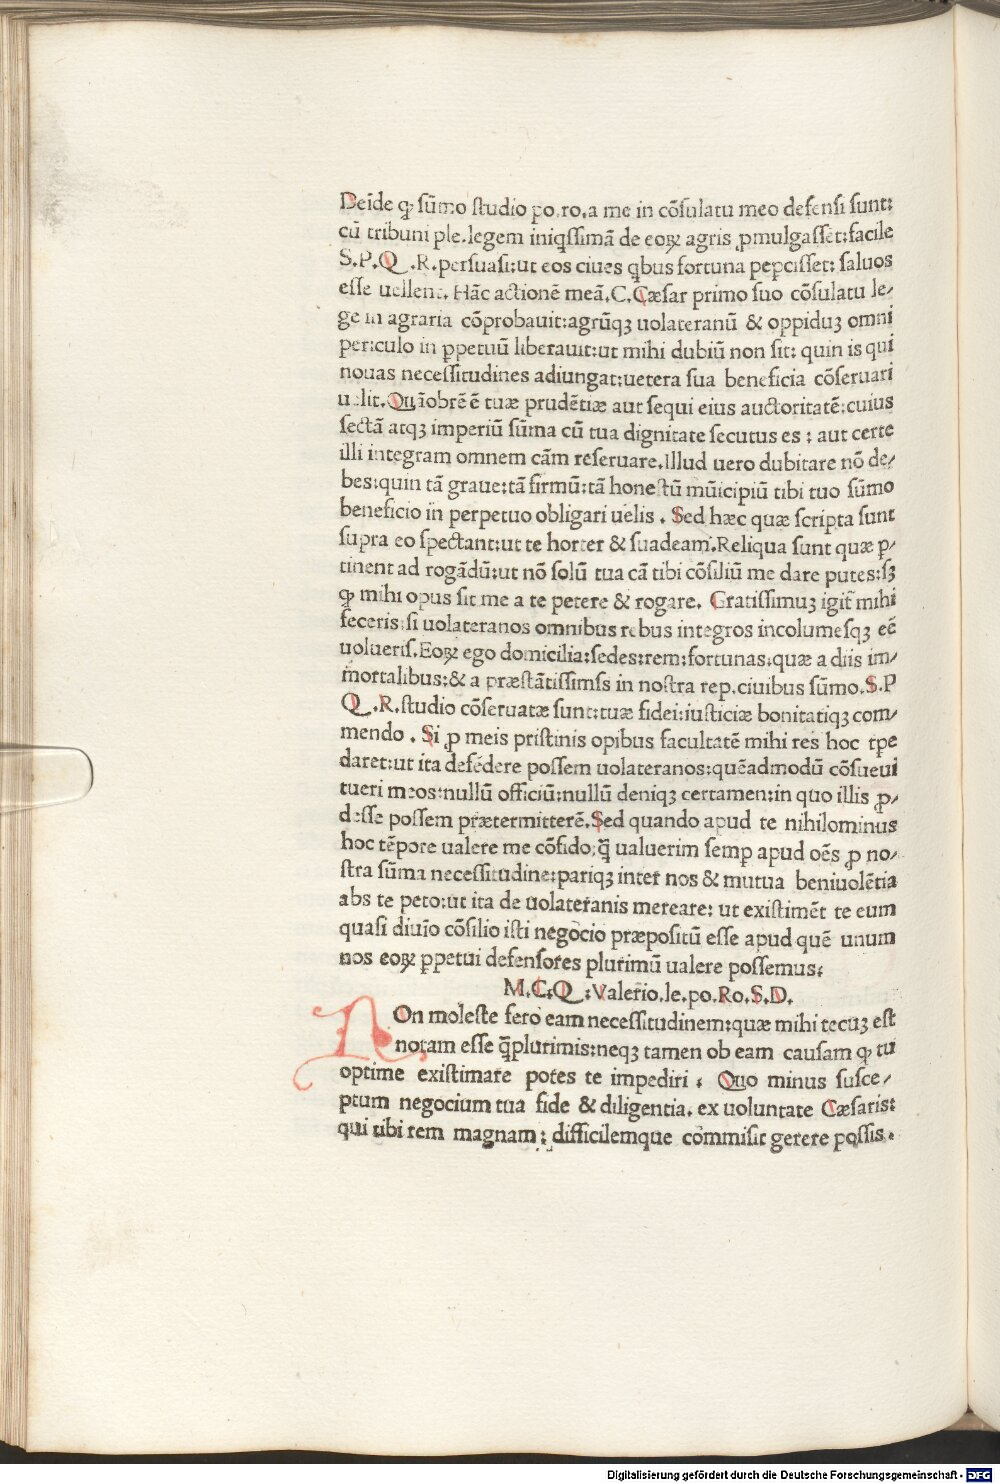 Deīde ꝙ sūmo studio po.ro.a me in cōsulatu meo defensi sunt:
cū tribuni ple.legem iniq̄ssimā de eoꝝ agris ꝓmulgasset:facile
S.P.Q.R.persuasi:ut eos ciues q̄bus fortuna peꝑcisset: saluos
esse uellent. Hāc actionē meā.C.Cæsar primo suo cōsulatu le/
ge in agraria cōprobauit:agrūqꝫ uolateranū & oppiduꝫ omni
periculo in ꝑpetuū liberauit:ut mihi dubiū non sit: quin is qui
nouas necessitudines adiungat:uetera sua beneficia cōseruari
uelit.Quāobrē ē tuæ prudētiæ aut sequi eius auctoritatē:cuius
sectā atqꝫ imperiū sūma cū tua dignitate secutus es : aut certe
illi integram omnem cām reseruare.Illud uero dubitare nō de/
bes:quin tā graue:tā firmū:tā honestū mūicipiū tibi tuo sūmo
beneficio in perpetuo obligari uelis . Sed hæc quæ scripta sunt
supra eo spectant:ut te horter & suadeam.Reliqua sunt quæ ꝑ/
tinent ad rogādū:ut nō solū tua cā tibi cōsiliū me dare putes:sꝫ
ꝙ mihi opus sit me a te petere & rogare. Gratissimuꝫ igit̄ mihi
feceris:si uolateranos omnibus rebus integros incolumesqꝫ eē
uolueris.Eoꝝ ego domicilia:sedes:rem:fortunas:quæ a diis im/
mortalibus:& a præstātissimss in nostra rep.ciuibus sūmo.S.P
Q.R.studio cōseruatæ sunt:tuæ fidei:iusticiæ bonitatiqꝫ com/
mendo . Si ꝓ meis pristinis opibus facultatē mihi res hoc tꝑe
daret:ut ita defēdere possem uolateranos:quēadmodū cōsueui
tueri meos:nullū officiū:nullū deniqꝫ certamen:in quo illis ꝓ/
desse possem prætermitterē.Sed quando apud te nihilominus
hoc tēpore ualere me cōfido:q̄ ualuerim semꝑ apud oēs ꝓ no/
stra sūma necessitudine:pariqꝫ inter nos & mutua beniuolētia
abs te peto:ut ita de uolateranis mereare: ut existimēt te eum
quasi diuīo cōsilio isti negocio præpositū esse apud quē unum
nos eoꝝ ꝑpetui defensores plurimū ualere possemus:
M.C.Q.Valerio.le.po.Ro.S.D.
NOn moleste fero eam necessitudinem:quæ mihi tecuꝫ est
notam esse q̄plurimis:neqꝫ tamen ob eam causam ꝙ tu
optime existimare potes te impediri . Quo minus susce/
ptum negocium tua fide & diligentia. ex uoluntate Cæsaris:
qui tibi rem magnam: difficilemque cōmmisit gerere possis.
Digitalisierung gefördert durch die Deutsche Forschungsgemeinschaft - DFG